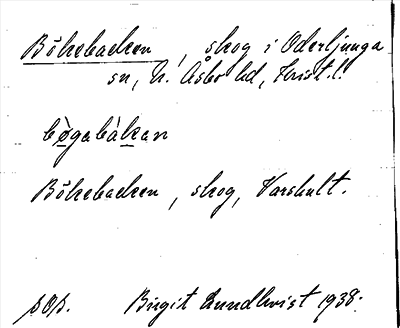 Bökebacken, skog i Oderljunga
sn, N. Åsbo hd, Krist. l.
bògabàkan
Bökebacken, skog, Varshult.
Birgit Lundkvist 1938.